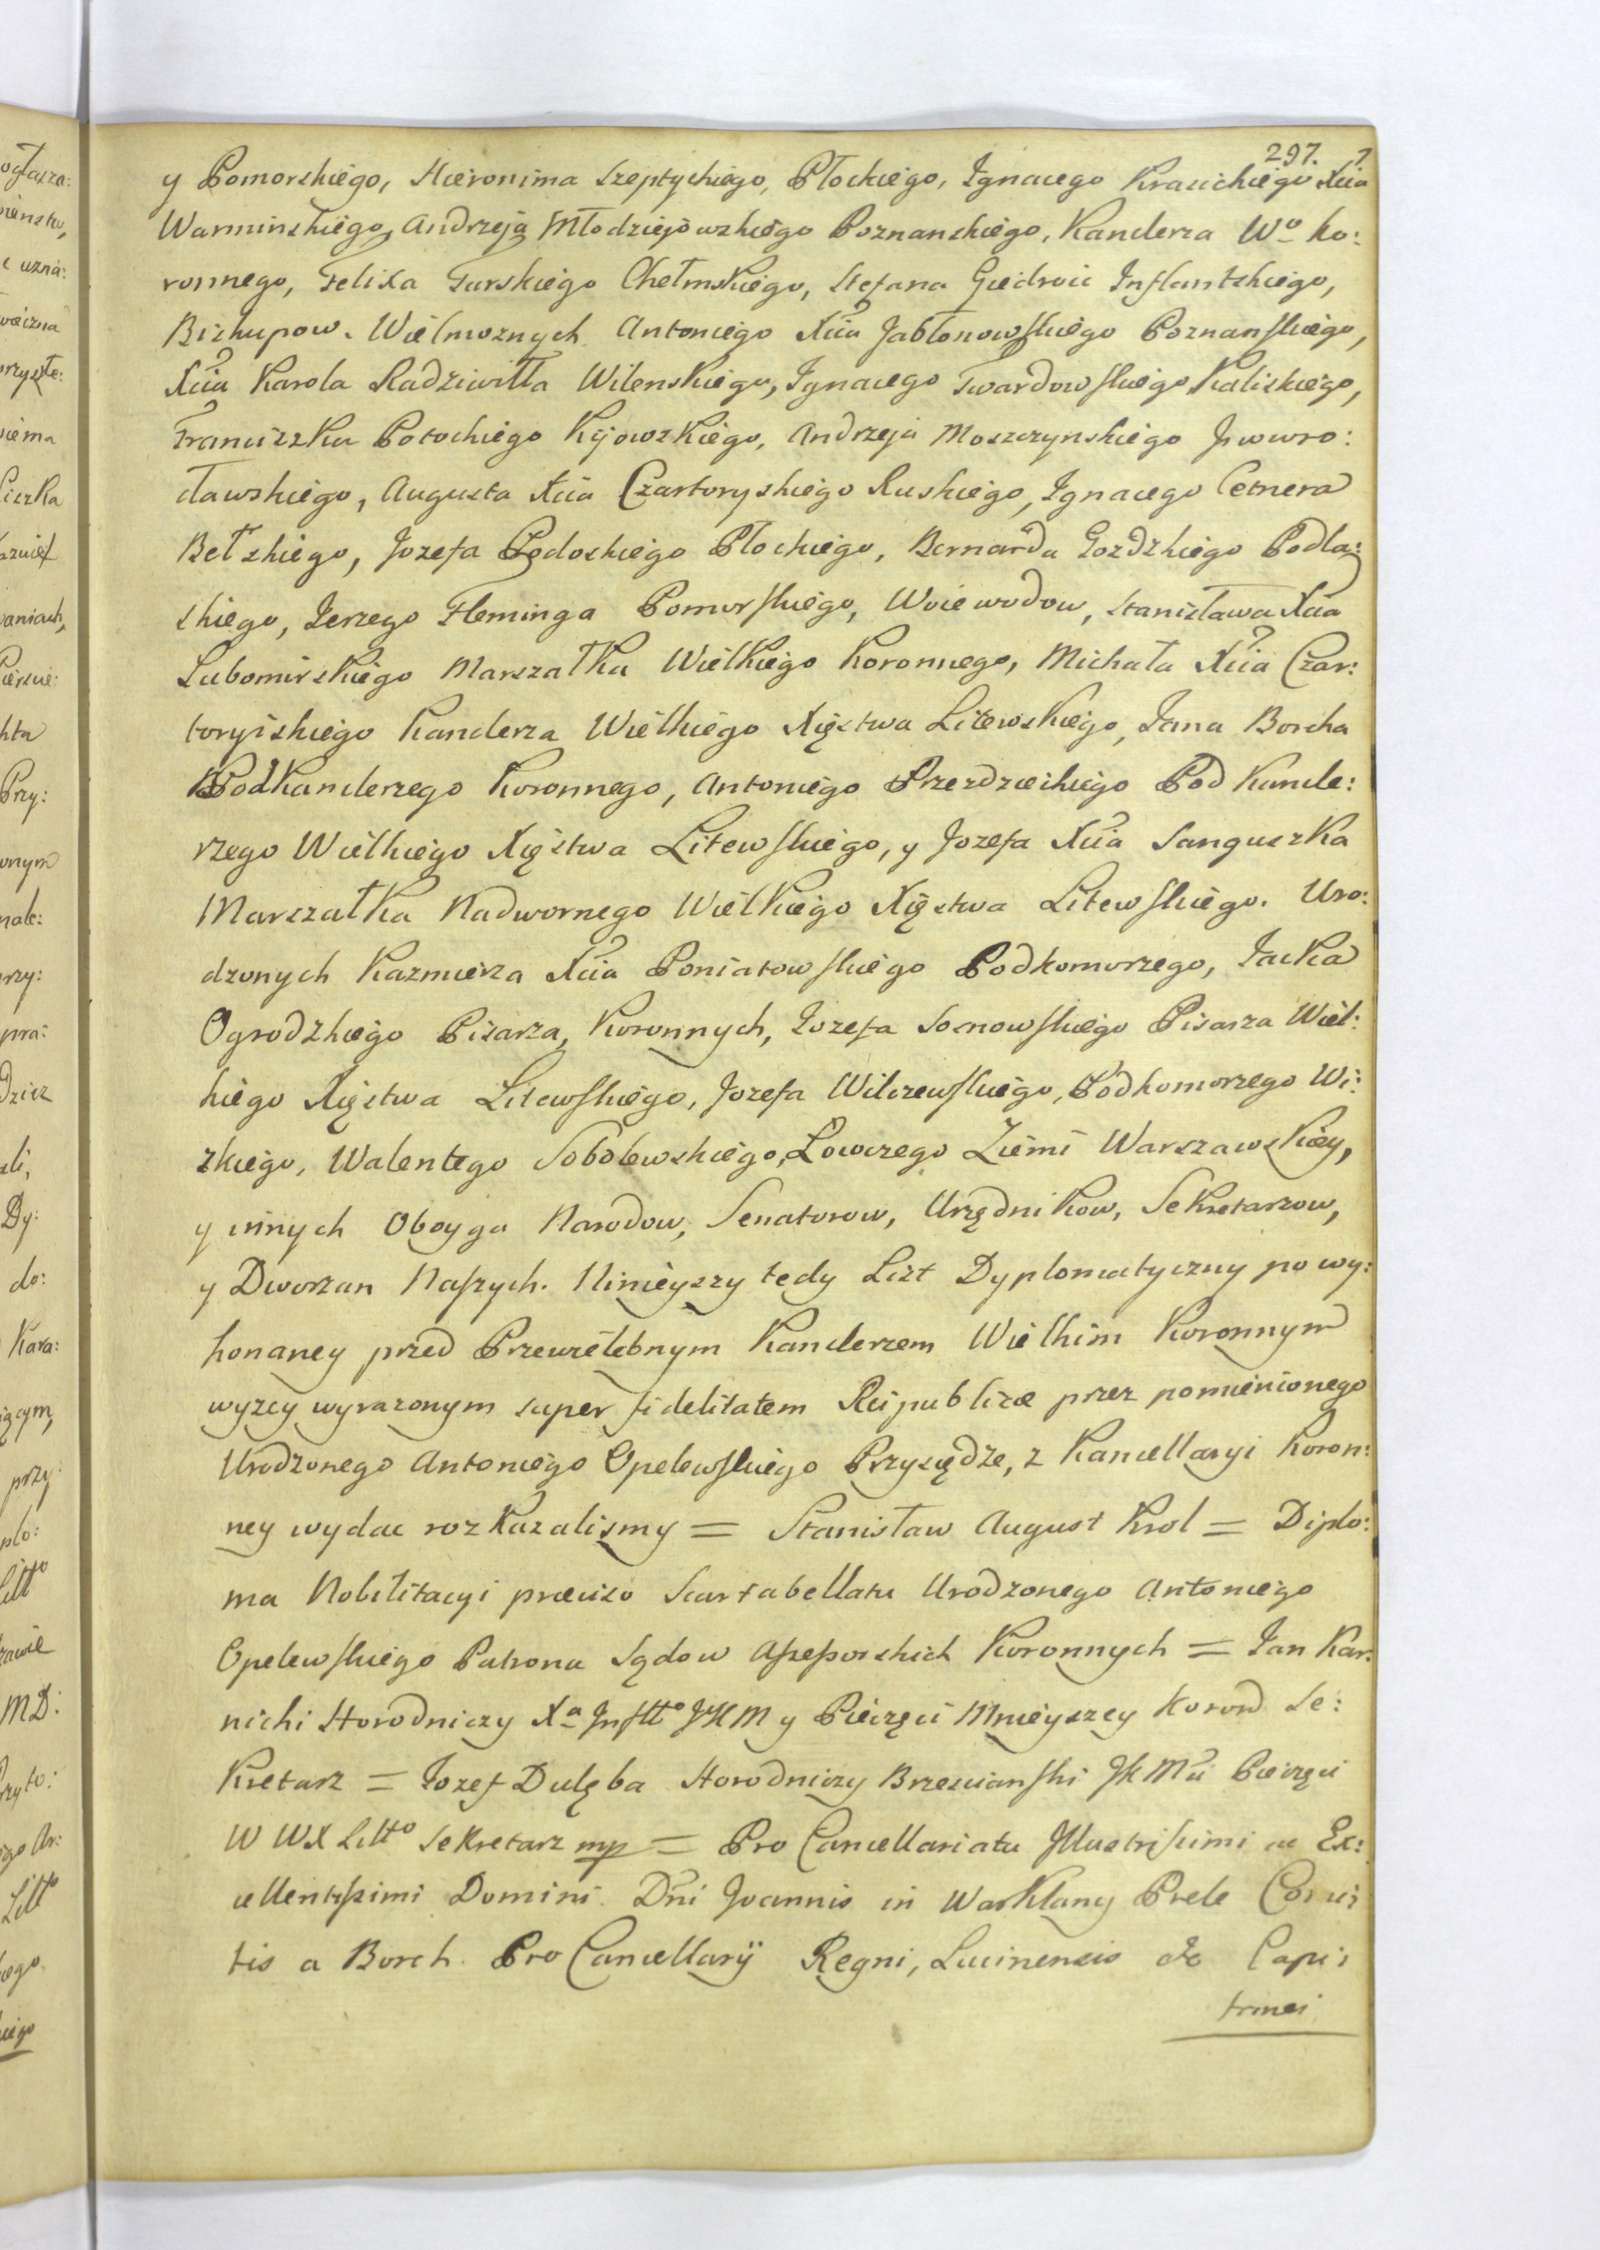 297. 7
y Pomorskiego, Hieronima Szeptyckiego, Płockiego, Ignacego Krasickiego Xcia
Warminskiego, Andrzeja Młodziejowskiego Poznanskiego, Kanclerza Wo Ko:
ronnego, Felixa Turskiego Chełmskiego, Stefana Giedroic Inflantskiego,
Biskupow. Wielmoznych Antoniego Xcia Jabłonowskiego Poznanskiego,
Xcia Karola Radziwiłła Wilenskiego, Ignacego Twardowskiego Kaliskiego,
Franciszka Potockiego Kijowskiego, Andrzeja Moszczynskiego Inowro:
cławskiego, Augusta Xcia Czartoryskiego Ruskiego, Ignacego Cetnera
Bełzkiego, Jozefa Podoskiego Płockiego, Bernarda Gozdzkiego Podla:
skiego, Jerzego Fleminga Pomorskiego, Woiewodow, Stanisława Xcia
Lubomirskiego Marszałka Wielkiego Koronnego, Michała Xcia Czar:
toryiskiego Kanclerza Wielkiego Xięstwa Litewskiego, Jana Borcha
Podkanclerzego Koronnego, Antoniego Przezdzieckiego Pod Kancle:
rzego Wielkiego Xięstwa Litewskiego, y Jozefa Xcia Sanguszka
Marszałka Nadwornego Wielkiego Xięstwa Litewskiego. Uro:
dzonych Kazmierza Xcia Poniatowskiego Podkomorzego, Jacka
Ogrodzkiego Pisarza, Koronnych, Jozefa Sosnowskiego Pisarza Wiel:
kiego Xięstwa Litewskiego, Jozefa Wilczewskiego, Podkomorzego Wi:
zkiego, Walentego Sobolewskiego, Łowczego Ziemi Warszawskiey,
y innych Oboyga Narodow, Senatorow, Urzędnikow, Sekretarzow,
y Dworzan Naszych. Ninieyszy tedy List Dyplomatyczny po wy:
konaney przed Przewielebnym Kanclerzem Wielkim Koronnym
wyzey wyrazonym super fidelitatem Reipublicæ przez pomienionego
Urodzonego Antoniego Opelewskiego Przysiędze, z Kancellaryi Koron:
ney wydac rozkazalismy = Stanisław August Krol = Diplo:
ma Nobilitacyi præciso Scartabellatu Urodzonego Antoniego
Opelewskiego Patrona Sądow Assessorskich Koronnych = Jan Kar:
nicki Horodniczy Xa Inftto JKM y Pieczęci Mnieyszey Koron Se:
kretarz = Jozef Dulęba Horodniczy Brzescianski JKMci Pieczęci
W WX Litto Sekretarz mp = Pro Cancellariatu Illustrissimi ac Ex:
cellentissimi Domini Dni Joannis in Warklany Prele Comi:
tis a Borch Pro Cancellarÿ Regni, Lucinensis &c Capi:
tanei